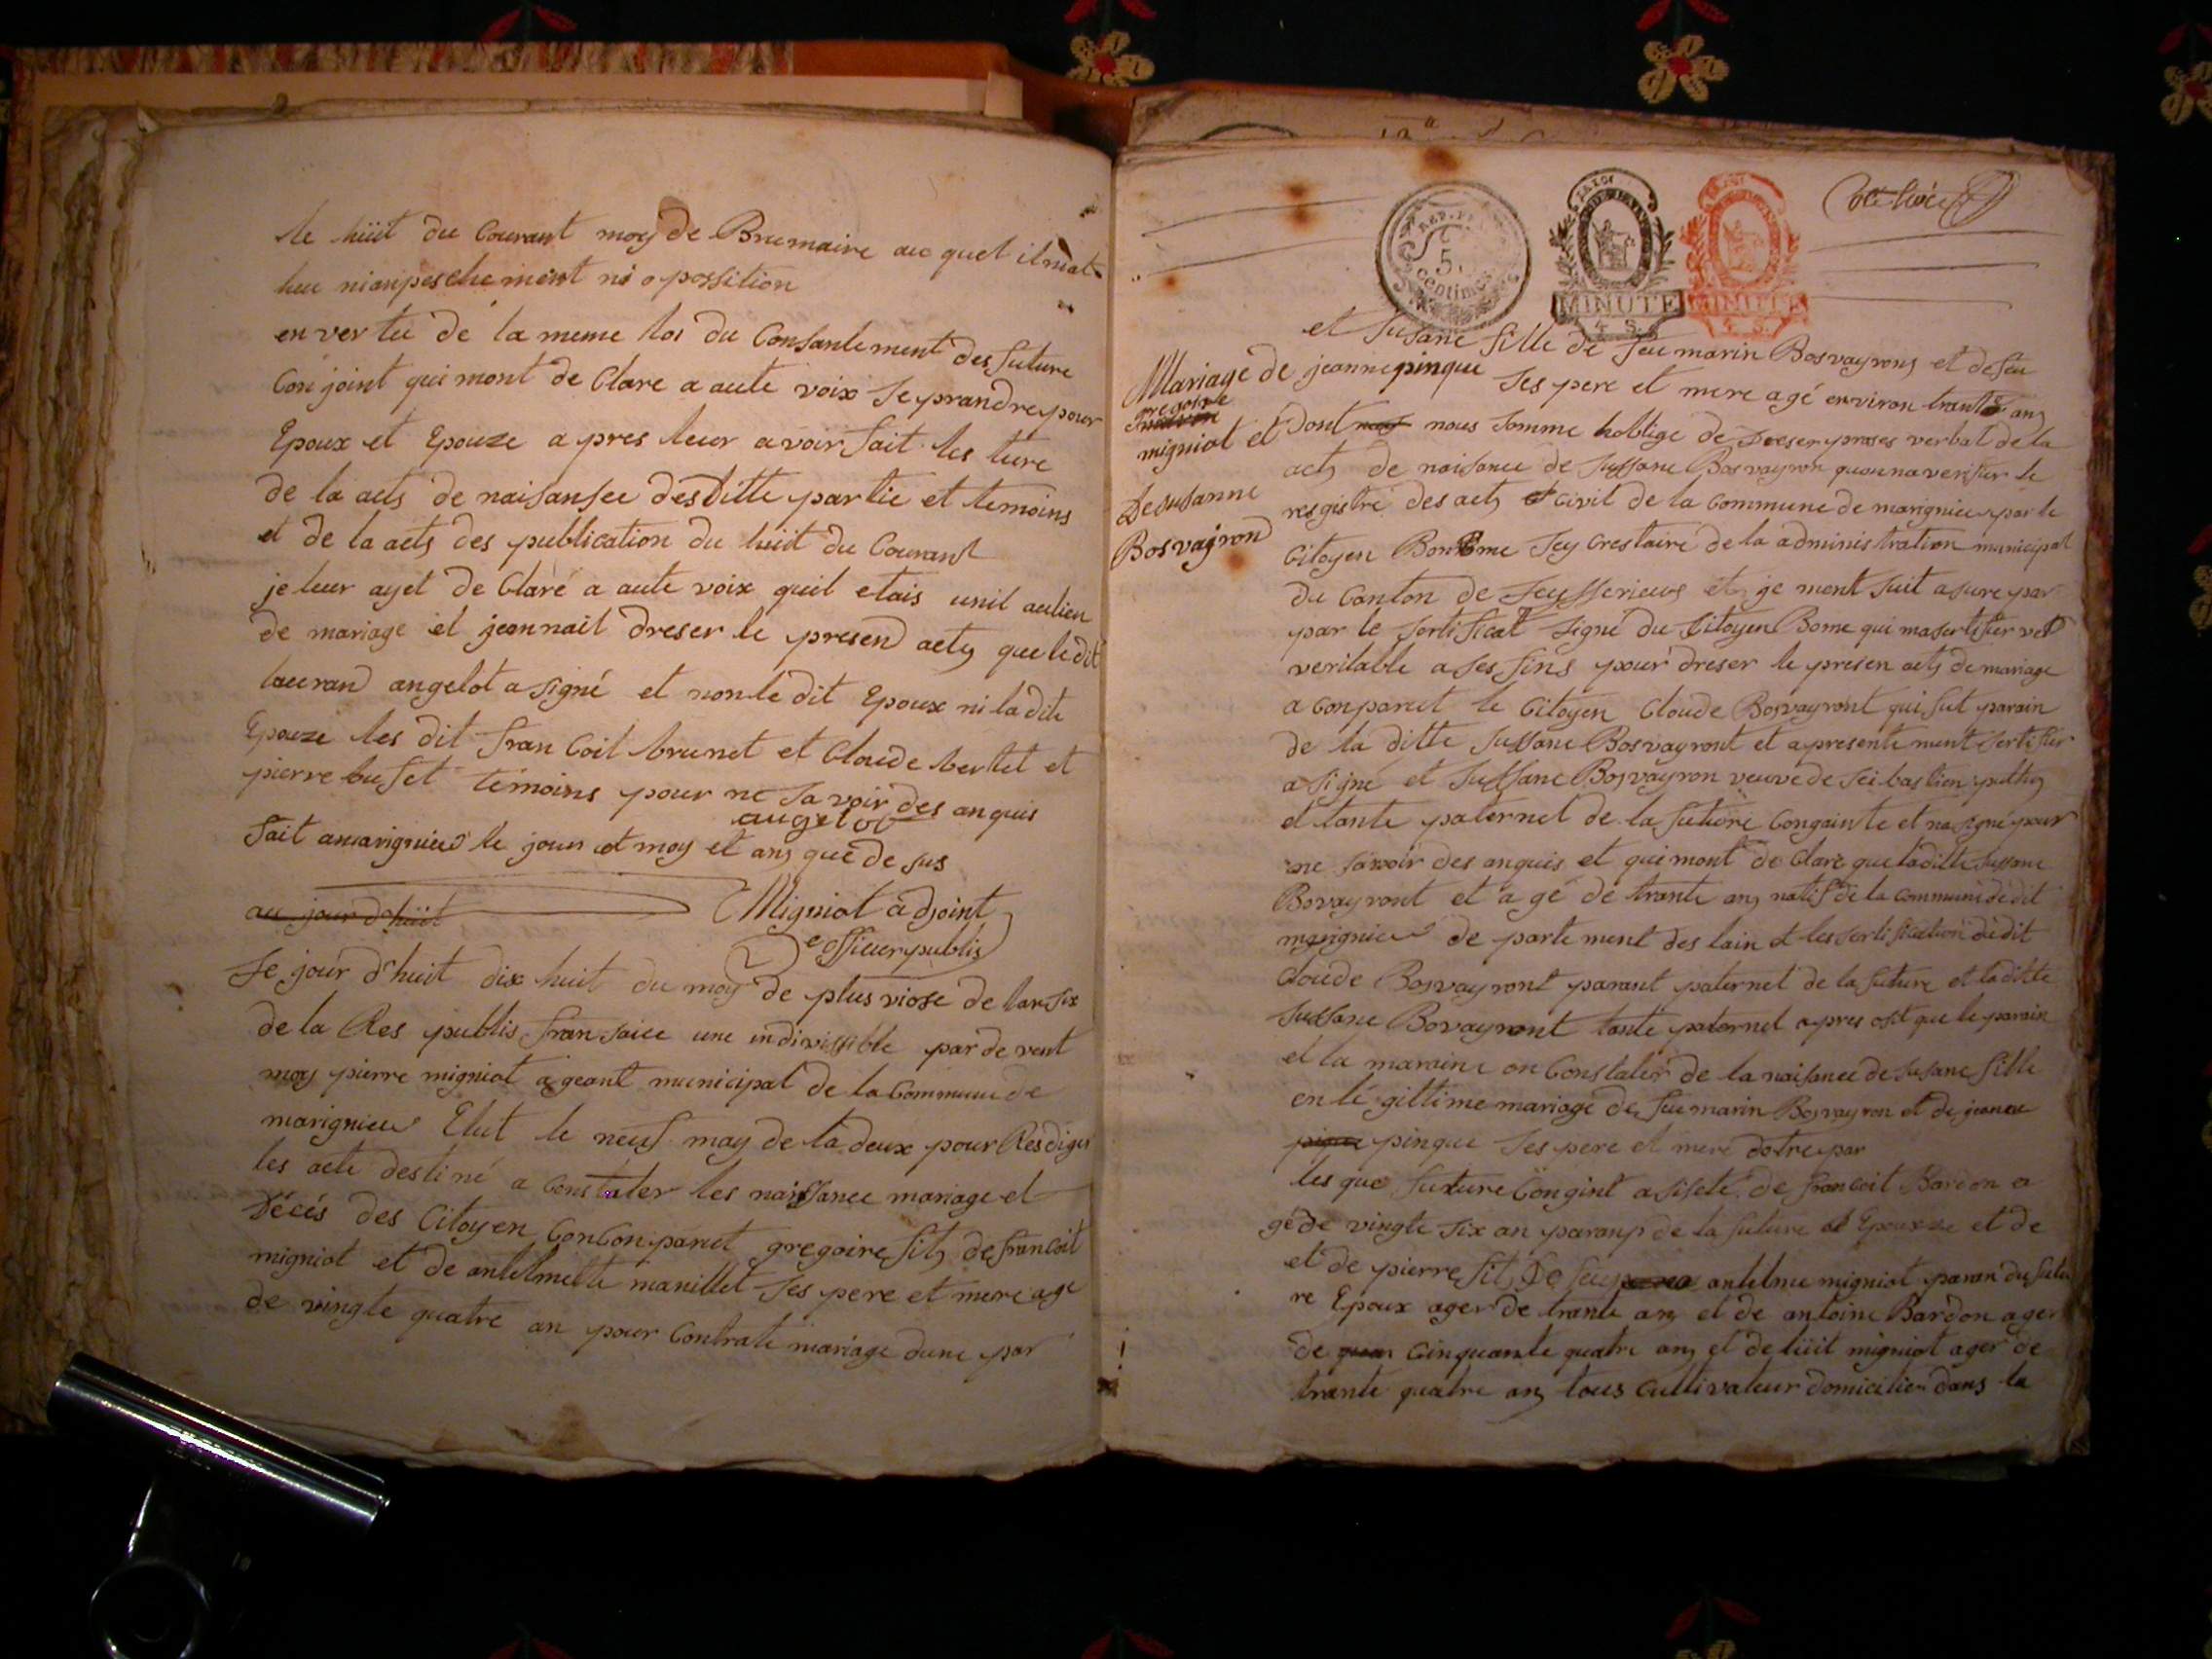 le hüit du Courant moy de Brumaire au quel il niat
heu ni anpeschement ni opossition
en vertu de la meme loi du Consantement des future
Conjoint qui mont de Clare a aute voix Se prandre pour
Epoux et Epouze a pres leur avoir fait les ture
de la acts de naisansee des ditte partie et temoins
et de la acts des publication du huit du Courant
je leur ayet de Claré a aute voix quil etais unit au lien
de mariage et jeannait dreser le presend acts que le dit
lauran angelot a signé et non le dit Epoux ni la dite
Epouze les dit francoil brunet et Claude bertet et
pierre buset temoins pour ne savoir des anquis
angelot
fait amarignieu le jour et moy et ans que de sus
au jour d'huit
Migniot adjoint
officier publis
Se jour d'huit dix huit du moy de plusviose de lan six
de la Res publis fransaice une indivissible par devent
moy pierre migniot ageant municipal de la Commune de
marignieu Elut le neuf may de la deux pour Resdiger
les acte destiné a Constater les naissance mariage et
Décés des Citoyen Con Conparut gregoire fils de francoit
migniot et de antelmette manillet Ses pere et mere age
de vingte quatre an pour Contrate mariage dune par
REP. FRA
5
centimes
LA LOI
MINUTE
4 S.
LA LOI
MINUTE
4 S.
et Susane fille de feu marin Bosvayrons et defeu
Mariage de jeanne pinque Ses pere et mere agé environ trante ans
gregoire
migniot et
De susanne
Bosvayron
Dont nous somme hoblige de Dreser proses verbal de la
acts de naisance de Sussane Bosvayron quon na verifier le
resgistre des acts et Civil de la Commune de marignieu par le
Citoyen Bonome Seycrestaire de la administration municipal
du Canton de Seysserieus et je mont suit asure par
par le sertificat signé du Citoyen Bome qui ma sertifier vet
veritable a ses fins pour dreser le presen acts de mariage
a Conparut le Citoyen Cloude Bosvayront qui fut parain
de la ditte Sussane Bosvayront et apresentement sertifier
a signé et Sussane Bosvayron veuve de Seibastien
et tante paternel de la future Congainte et na signé pour
ne savoir des anquis et qui mont de Claré que la ditte Sussane
Bovayront et agé de trante ans natif de la Commune de dit
marignieu de partement des lain et les sertification du dit
Cloude Bosvayront parant paternel de la future et la ditte
Sussane Bovayront tante paternel apres osit que le parain
et la maraine on Constater de la naisance de Susane fille
en lé gittime mariage de feu marin Bosvayron et de jeanne
pinque Ses pere et mere dotre par
les que future Congint a sisete de francoit Bardon a
gé de vingte six an paranp de la future Epouxze et de
et de pierre fils De feu antelme migniot paran du futu
re Epoux ager de trante ans et de antoine Bardon ager
de Cinquante quatre ans et de lüit migniot ager de
trante quatre ans tous Cultivateur domicilier dans la